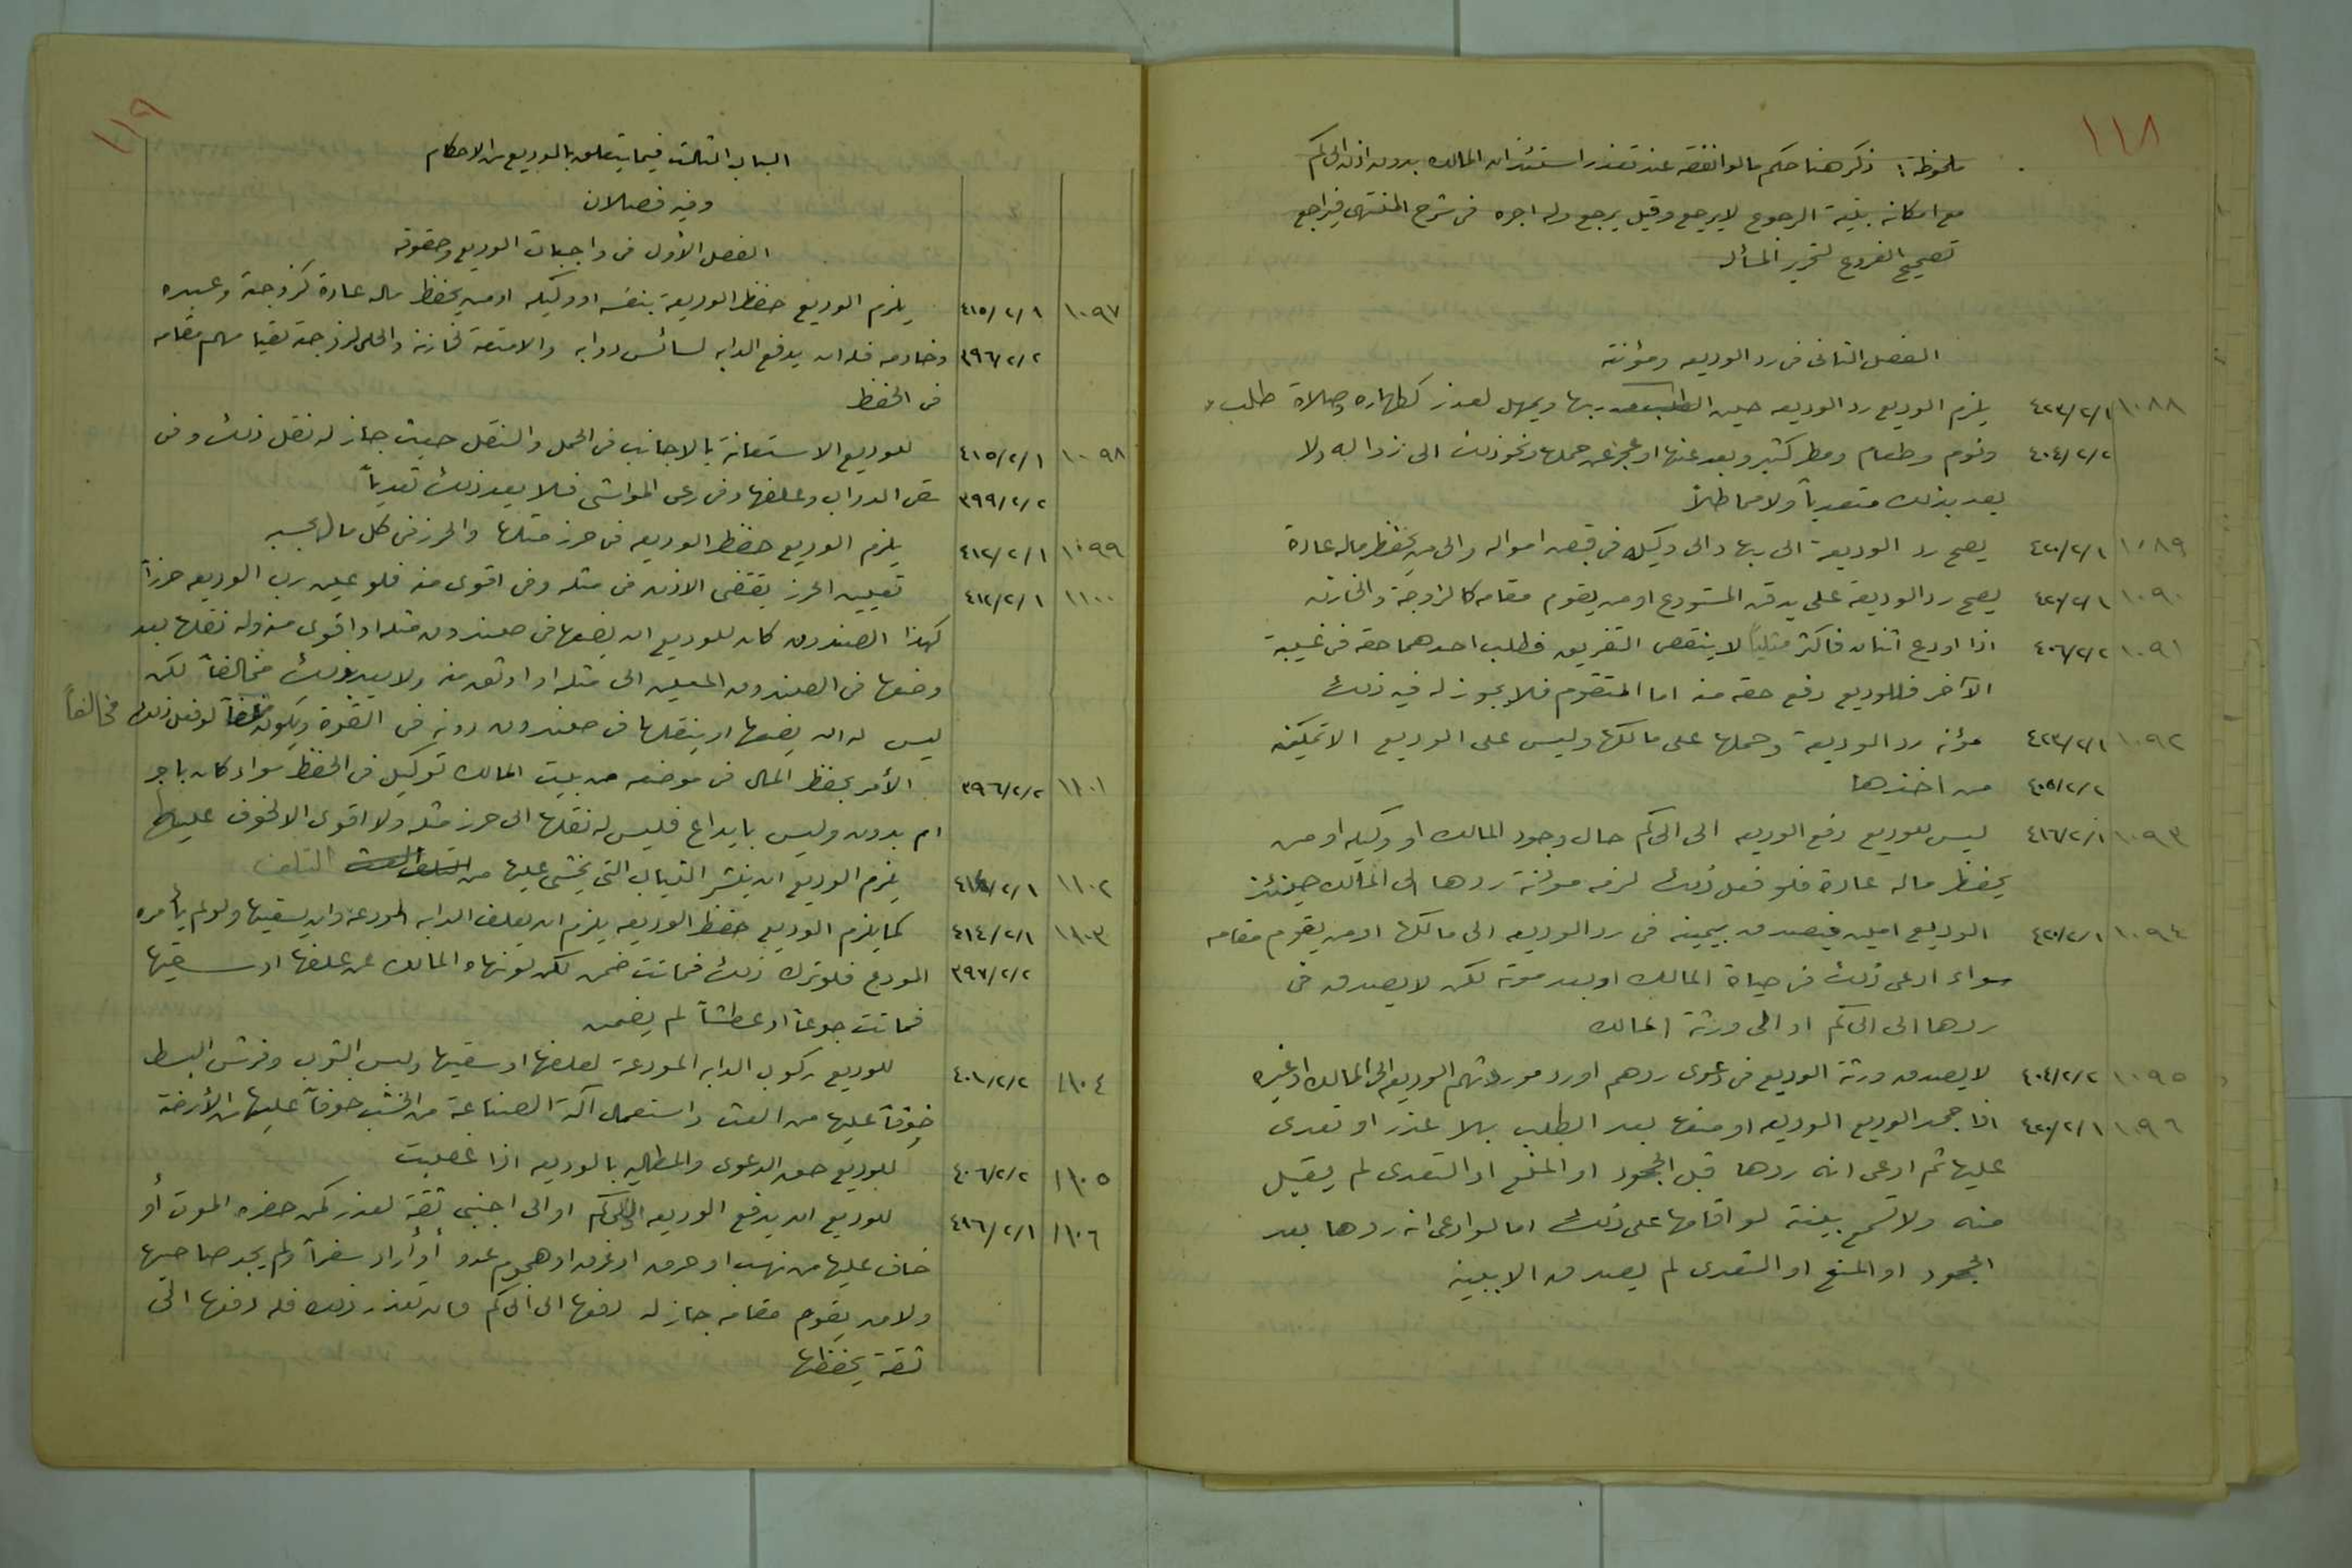 ١١٨
ملحوظة: ذكر هنا حكم ما لو انفقه عند تعذر استئذان المالك بدون اذن الحاكم
مع امكانه بنية الرجوع لا يرجع وقيل يرجع وله اجره في شرح المنتهى فيراجع
تصحيح الفروع لتحرير المسألة
الفصل الثاني في رد الوديعه ومؤنته
١٠٨٨ ٤٢٣/٢/١ يلزم الوديع رد الوديعه حين الطلب ربها ويمهل لعذر كطهاره وصلاة طلب
٤٠٤/٢/٢ ونوم وطعام ومطر كثير وبعد عنها او عجز عن حملها ونحو ذلك الى زواله ولا
يعد بذلك متعدياً ولا مماطلاً
١٠٨٩ ٤٢٠/٢/١ يصح رد الوديعة الى ربها والى وكيله في قبض امواله والى من يحفظ ماله عادة
١٠٩٠ ٤٢٠/٢/١ يصح رد الوديعة على يد قن المستودع او من يقوم مقامه كالزوجة والخازنه
١٠٩١ ٤٠٦/٢/٢ اذا اودع اثنان فاكثر مثلياً لا ينقص التفريق فطلب احدهما حقه في غيبة
الآخر فللوديع دفع حقه منه اما المتقوم فلا يجوز له فيه ذلك
١٠٩٢ ٤٢٣/٢/١ مؤنه رد الوديعة وحملها على مالكها وليس على الوديع الا تمكينه
٤٠٥/٢/٢ من اخذها
١٠٩٣ ٤١٦/٢/١ ليس للوديع دفع الوديعه الى الحاكم حال وجود المالك او وكيله او من
يحفظ ماله عادة فلو فعل ذلك لزمه مؤنة ردها الى المالك حينئذ
١٠٩٤ ٤٢٠/٢/١ الوديع امين فيصدق بيمينه في رد الوديعه الى مالكها او من يقوم مقامه
سواء ادعى ذلك في حياة المالك او بعد موته لكن لا يصدق في
ردها الى الحاكم او الى ورثة المالك
١٠٩٥ ٤٠٤/٢/٢ لا يصدق ورثة الوديع في دعوى ردهم او رد مورثهم الوديع الى المالك او غيره
١٠٩٦ ٤٢٠/٢/١ اذا جحد الوديع الوديعه او منعها بعد الطلب بلا عذر او تعدى
عليها ثم ادعى انه ردها قبل الجحود او المنع او التعدى لم يقبل
منه ولا تسمع بينة لو اقامها على ذلك اما لو ادعى انه ردها بعد
الجحود او المنع او التعدى لم يصدق الا ببينه
١١٩
الباب الثالث فيما يتعلق بالوديع من الاحكام
وفيه فصلان
الفصل الأول في واجبات الوديع وحقوقه
١٠٩٧ ٤١٥/٢/١ يلزم الوديع حفظ الوديعة بنفسه او وكيله او من يحفظ ماله عادة كزوجة وعبده
٣٩٦/٢/٢ وخادمه فله ان يدفع الدابه لسائس دوابه والامتعة لخازنه والحلى لزوجة لقيامهم مقامه
في الحفظ
١٠٩٨ ٤١٥/٢/١ للوديع الاستعانة بالاجانب في الحمل والنقل حيث جاز له نقل ذلك وفى
٣٩٩/٢/٢ سقى الدواب وعلفها وفى رعى المواشى فلا يعد ذلك تعدياً
١٠٩٩ ٤١٢/٢/١ يلزم الوديع حفظ الوديعه في حرز مثلها والحرز في كل مال بحسبه
١١٠٠ ٤١٢/٢/١ تعيين الحرز يقتضى الاذن في مثله وفى اقوى منه فلو عين رب الوديعه حرزاً
كهذا الصندوق كان للوديع ان يضعها في صندوق مثله او اقوى منه وله نقلها بعد
وضعها في الصندوق المعين الى مثله او اوثق منه ولا يعد بذلك مخالفاً لكن
ليس له ان يضعها او ينقلها في صندوق دونه في القوة ويكون لو فعل ذلك مخالفاً
١١٠١ ٣٩٦/٢/٢ الأمر بحفظ المال في موضعه من بيت المالك توكيل في الحفظ سواء كان باجر
ام بدون وليس بايداع فليس له نقلها الى حرز مثله ولا اقوى الا لخوف عليها
١١٠٢ ٤١٤/٢/١ يلزم الوديع ان ينشر الثياب التى يخشى عليها من التلف
١١٠٣ ٤١٤/٢/١ كما يلزم الوديع حفظ الوديعه يلزم ان يعلف الدابه المودعة وان يسقيها ولو لم يأمره
٣٩٧/٢/٢ المودع فلو ترك ذلك فماتت ضمن لكن لو نهاه المالك عن علفها او سقيها
فماتت جوعاً او عطشاً لم يضمن
١١٠٤ ٤٠١/٢/٢ للوديع ركوب الدابه المودعة لعلفها او سقيها ولبس الثوب وفرش البسط
خوفاً عليها من العث واستعمال آلة الصناعة من الخشب خوفاً عليها من الأرضة
١١٠٥ ٤٠٦/٢/٢ للوديع حق الدعوى والمطالبه بالوديعه اذا غصبت
١١٠٦ ٤١٦/٢/١ للوديع ان يدفع الوديعه الى الحاكم او الى اجنبى ثقة لعذر كمن حضره الموت أو
خاف عليها من نهب او حرق او غرق او هجوم عدو أو أراد سفراً ولم يجد صاحبها
ولا من يقوم مقامه جاز له دفعها الى الحاكم فان تعذر ذلك فله دفعها الى
ثقة يحفظها